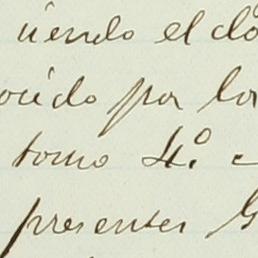 iendo el do
ocido por lo
tomo 4.º e
presentes G